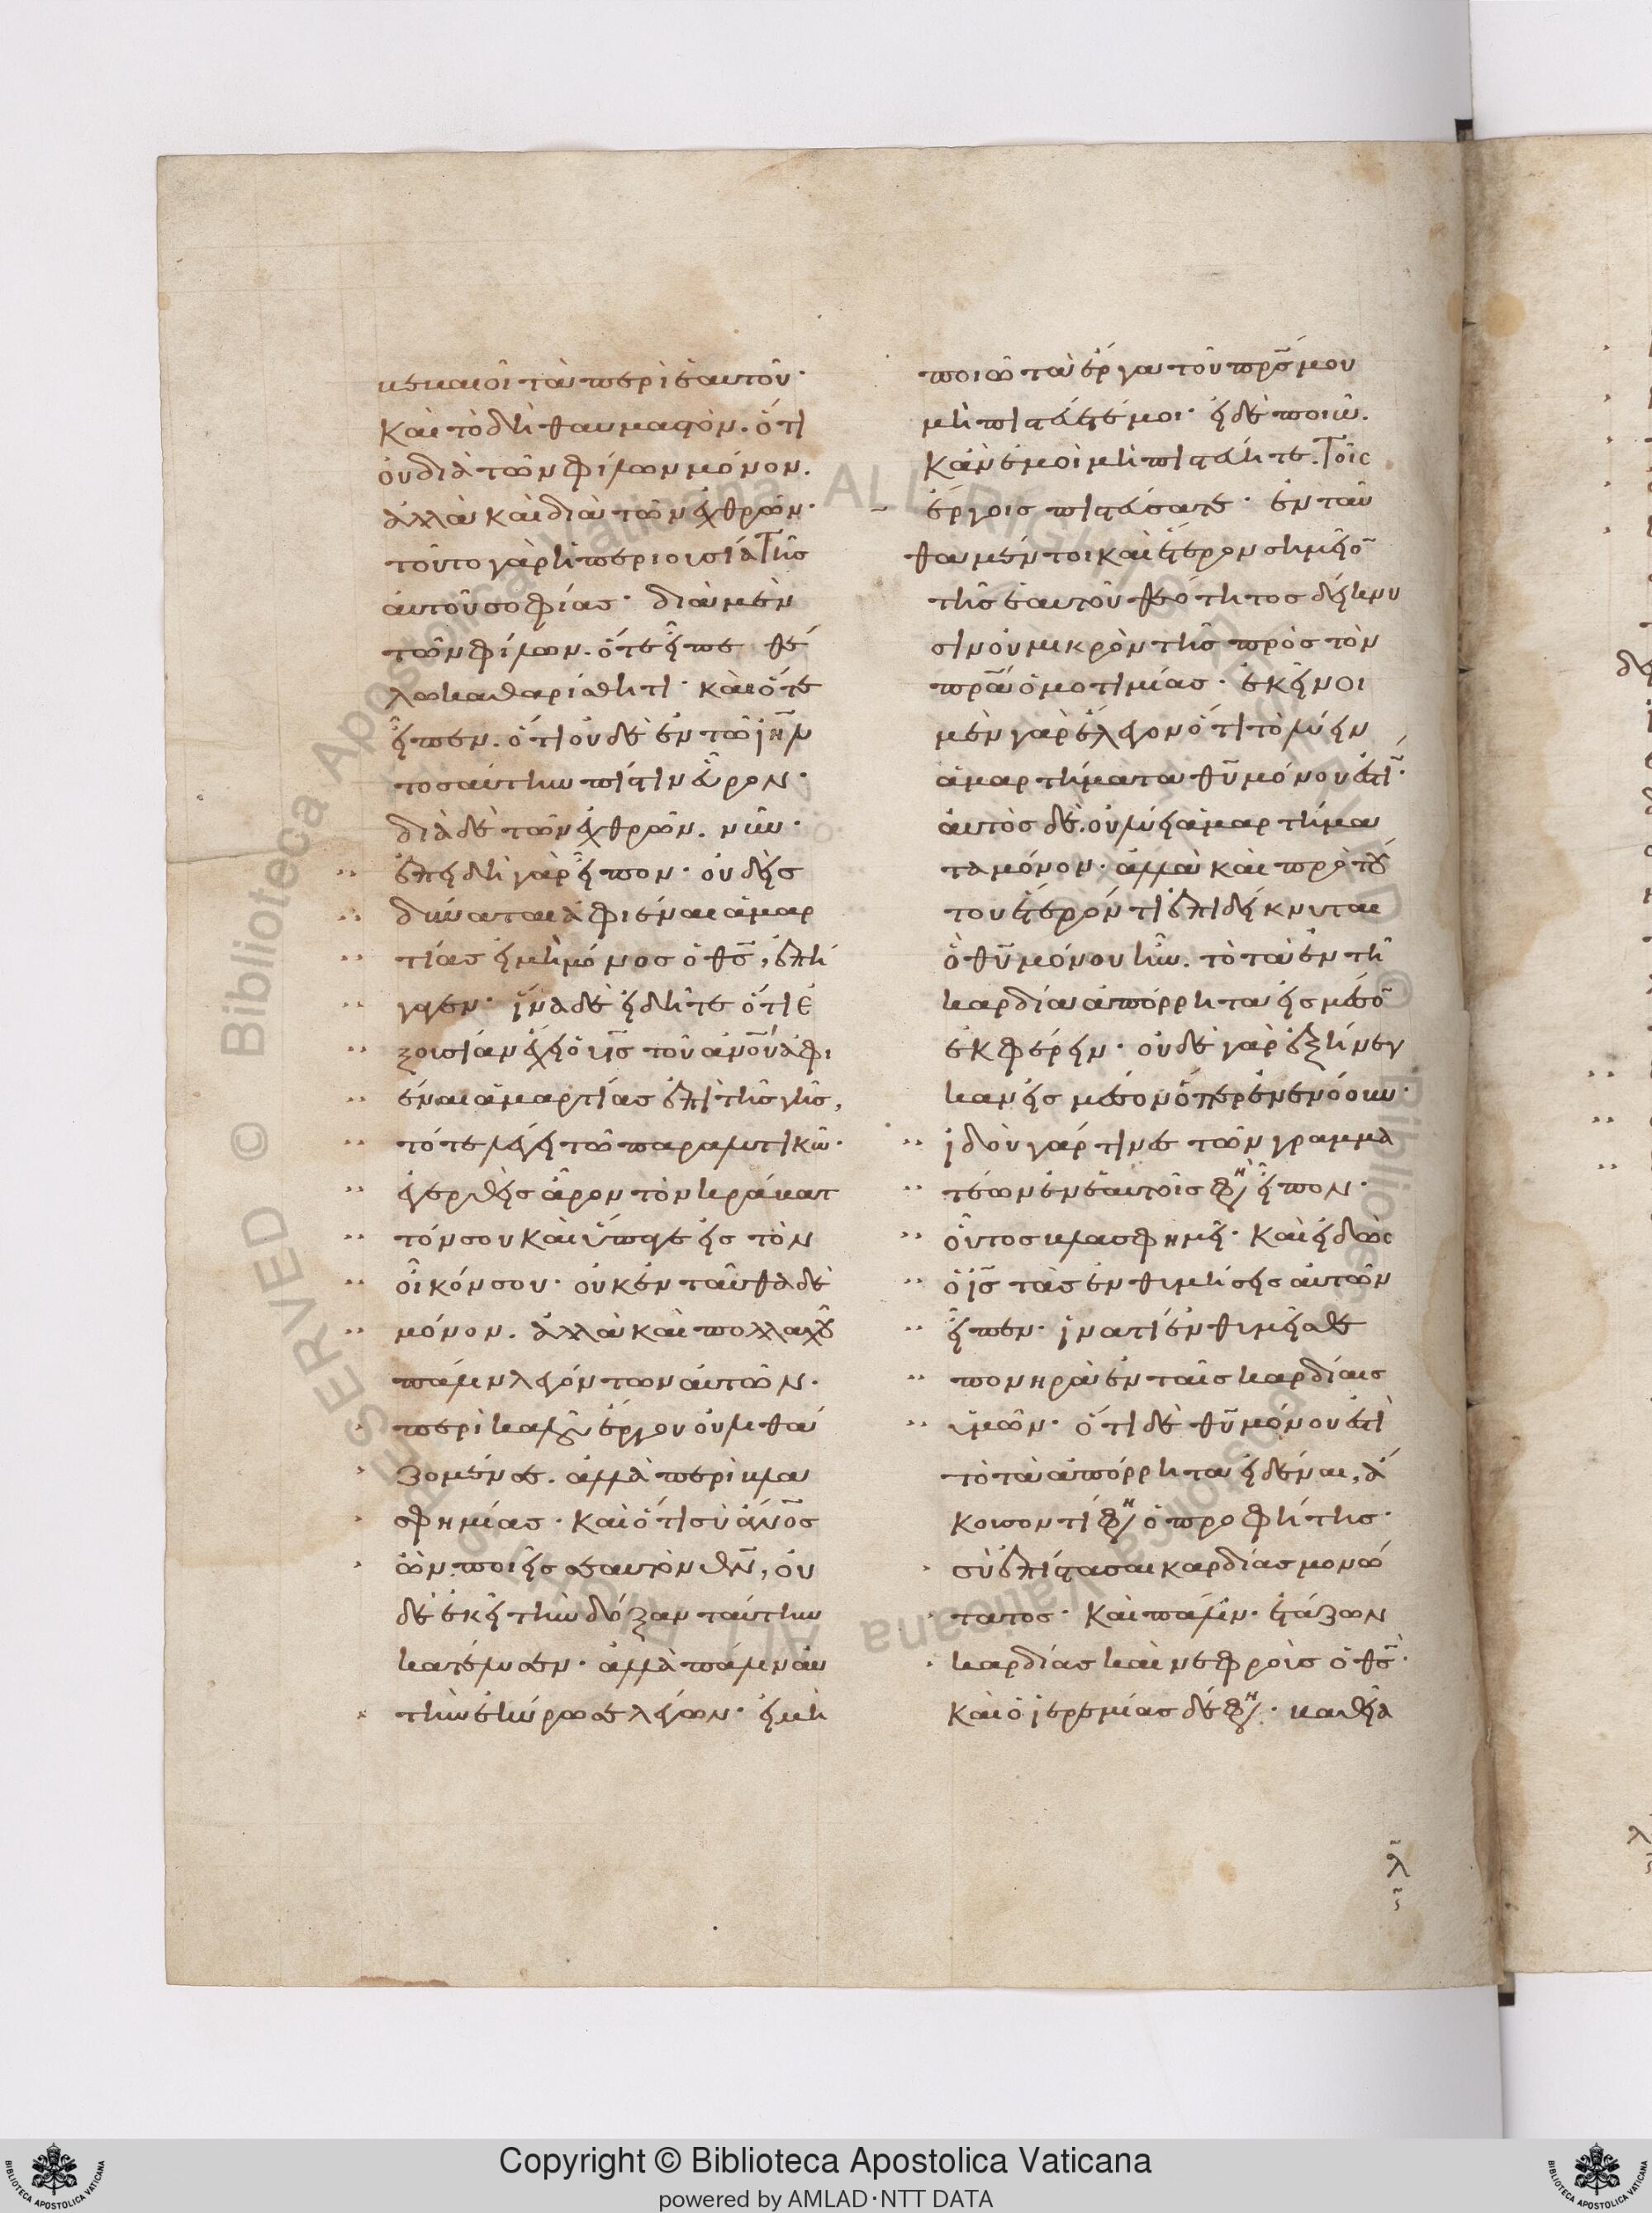 κεκαιοῖ τὰ περὶ ἑαυτοῦ·
καὶ τὸ δὴ θαυμαστὸν. ὅτι
οὐ διὰ τῶν φίλων μόνον.
ἀλλὰ καὶ διὰ τῶν ἐχθρῶν·
τοῦτο γὰρ ἡ περιουσία τῆς
αὐτοῦ σοφίας· διὰ μὲν
τῶν φίλων. ὅτε εἶπε θέ
λω καθαρίσθητι· καὶ ὅτε
εἶπεν. ὅτι οὐδὲ ἐν τῶ ιηλ
τοσαύτην πίστιν εὗρον·
διὰ δὲ τῶν ἐχθρῶν. νῦν·
ἐπειδὴ γὰρ εἶπον· οὐδεὶς
δύναται ἀφιέναι ἁμαρ
τίας εἰ μὴ μόνος ὁ θς, ἐπή
γαγεν· ἵνα δὲ εἰδῆτε ὅτι ἐ
ξουσίαν ἔχει ὁ υἱς τοῦ ανου ἀφι
έναι ἁμαρτίας ἐπὶ τῆς γῆς,
τότε λέγει τῶ παραλυτικῶ·
ἐγερθεὶς ἆρον τὸν κράββατ
τόν σου καὶ ὕπαγε εἰς τὸν
οἶκόν σου· οὐκ ἐνταῦθα δὲ
μόνον. ἀλλὰ καὶ πολλαχοῦ
πάλιν λεγόντων αὐτῶν·
περὶ καλοῦ ἔργου οὐ λιθά
ζομέν σε. ἀλλὰ περὶ βλα
σφημίας· καὶ ὅτι σὺ ανος
ὢν ποιεῖς σεαυτὸν θν, οὐ
δὲ ἐκεῖ τὴν δόξαν ταύτην
κατέλυσεν· ἀλλὰ πάλιν αὐ
τὴν ἐκύρωσε λέγων· εἰ μὴ
ποιῶ τὰ ἔργα τοῦ πρς μου
μὴ πιστεύετέ μοι· εἰ δὲ ποιῶ.
κἂν ἐμοὶ μὴ πιστεύητε. τοῖς
ἔργοις πιστεύσατε· ἐνταῦ
θα μέντοι καὶ ἕτερον σημεῖο
τῆς ἑαυτοῦ θεότητος δείκνυ
σιν οὐ μικρὸν τῆς πρὸς τὸν
πρα ὁμοτιμίας· ἐκεῖνοι
μὲν γὰρ ἔλεγον ὅτι τὸ λύειν
ἁμαρτήματα θυ μόνου ἐστί·
αὐτὸς δὲ. οὐ λύει ἁμαρτήμα
τα μόνον· ἀλλὰ καὶ πρὸ τού
του ἕτερόν τι ἐπιδείκνυται
ὃ θυ μόνου ἦν. τὸ τὰ ἐν τῆ
καρδία ἀπόρρητα εἰς μέσο
ἐκφέρειν· οὐδὲ γὰρ ἐξήνεγ
καν εἰς μέσον ὅπερ ἐνενόουν·
ἰδοὺ γάρ τινες τῶν γραμμα
τέων ἐν ἑαυτοῖς φη εἶπον·
οὗτος βλασφημεῖ· καὶ εἰδὼς
ὁ ις τὰς ἐνθυμήσεις αὐτῶν
εἶπεν· ἱνατί ἐνθυμεῖσθε
πονηρὰ ἐν ταῖς καρδίαις
ὑμῶν· ὅτι δὲ θυ μόνου ἐστὶ
τὸ τὰ ἀπόρρητα εἰδέναι, ἄ
κουσον τί φη ὁ προφήτης·
σὺ ἐπίστασαι καρδίας μονώ
τατος· καὶ πάλιν· ἐτάζων
καρδίας καὶ νεφροὺς ὁ θς·
καὶ ὁ ἱερεμίας δέ φη· βαθεῖα